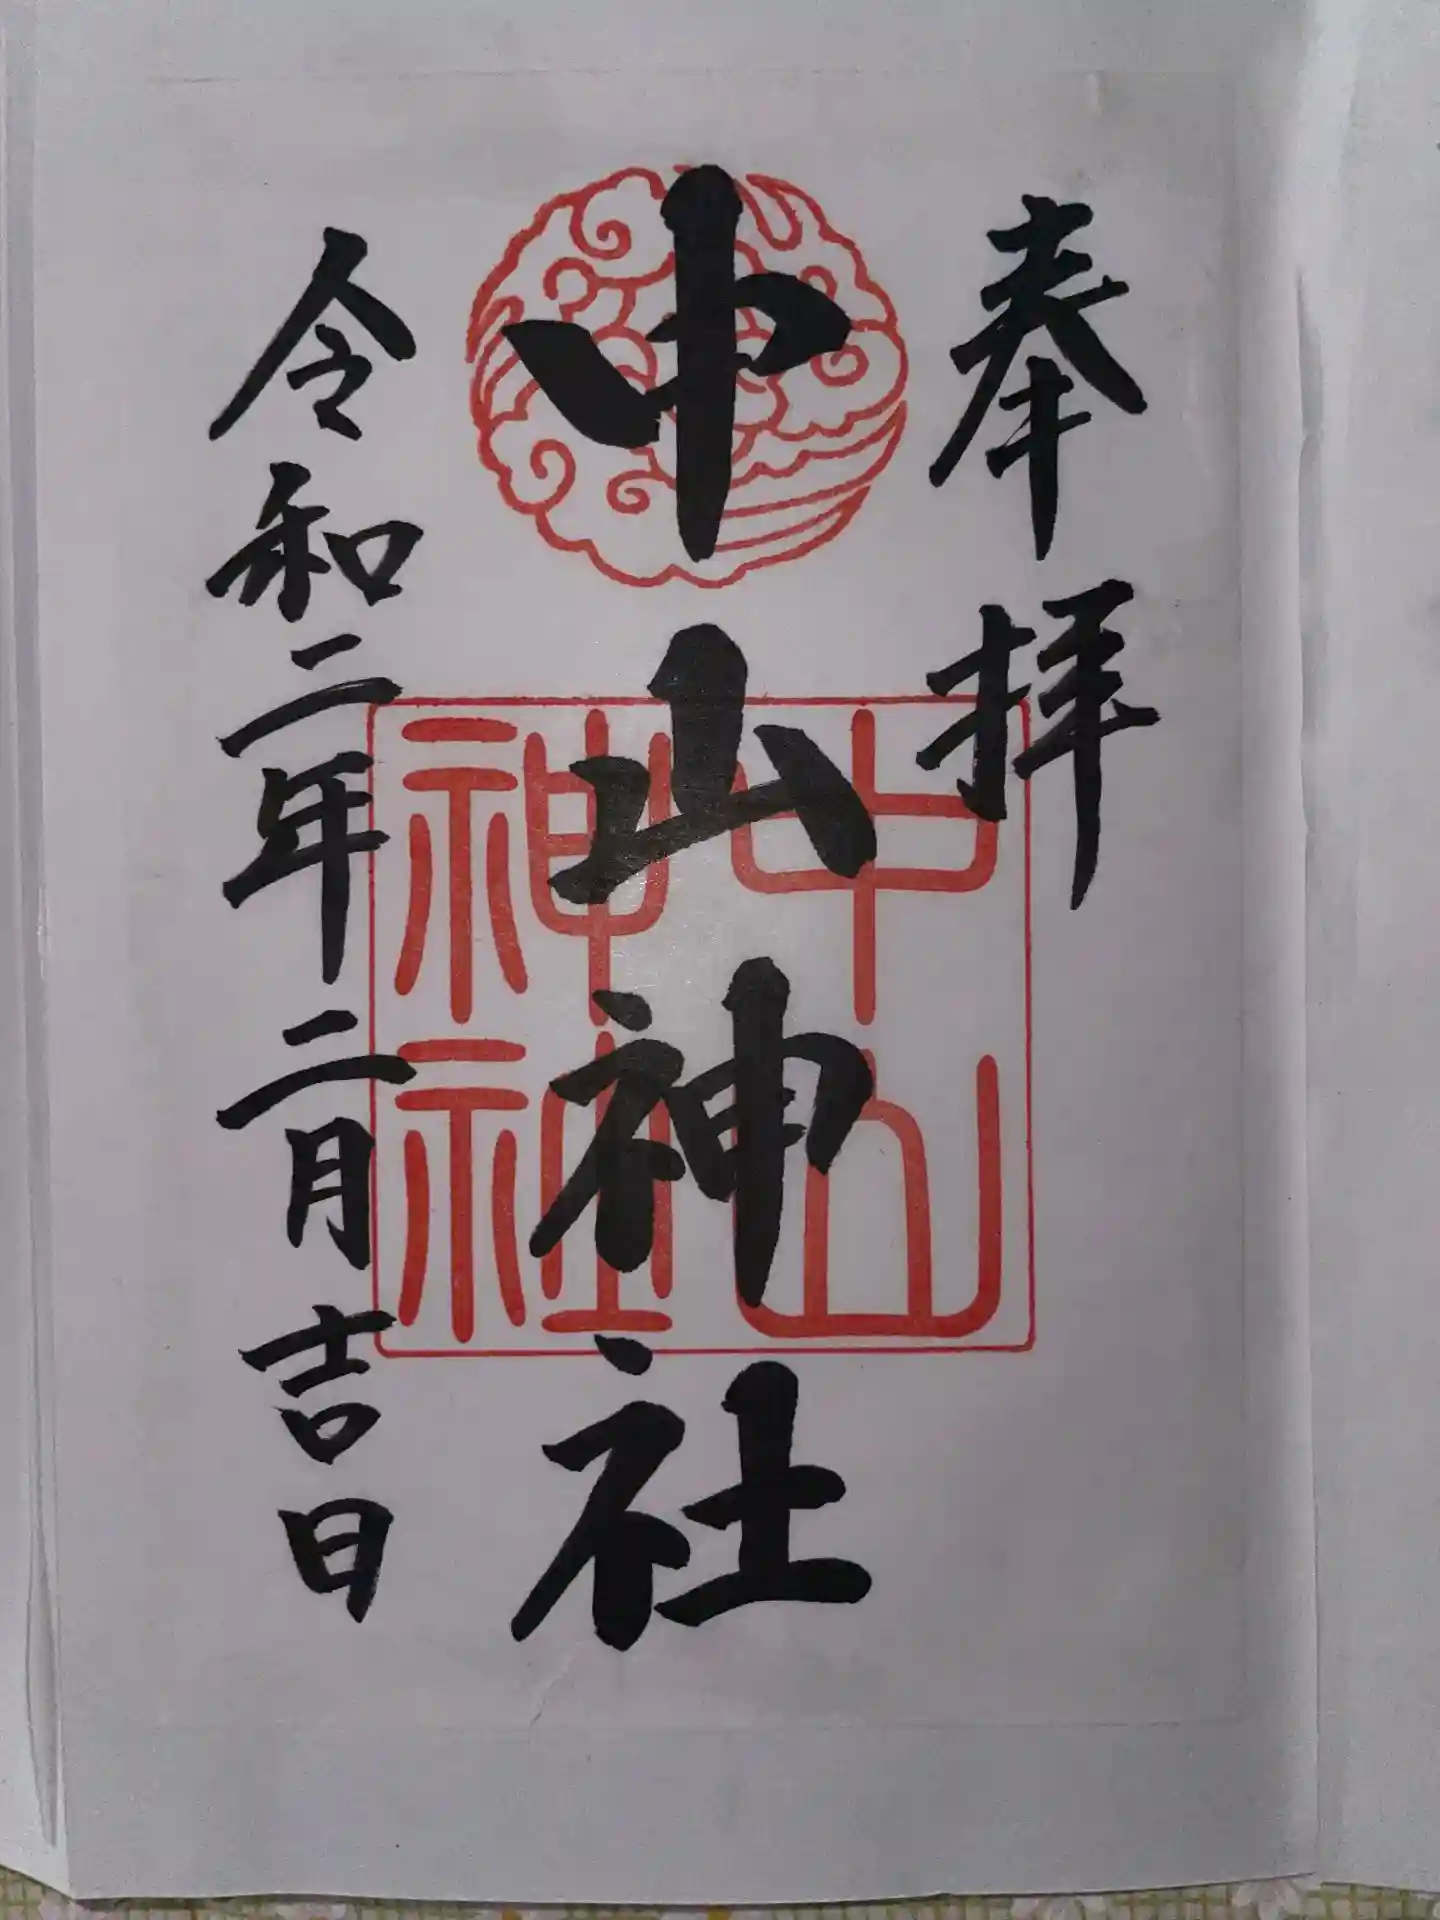 奉拝
中山神社
令和二年二月吉日
中山
神社